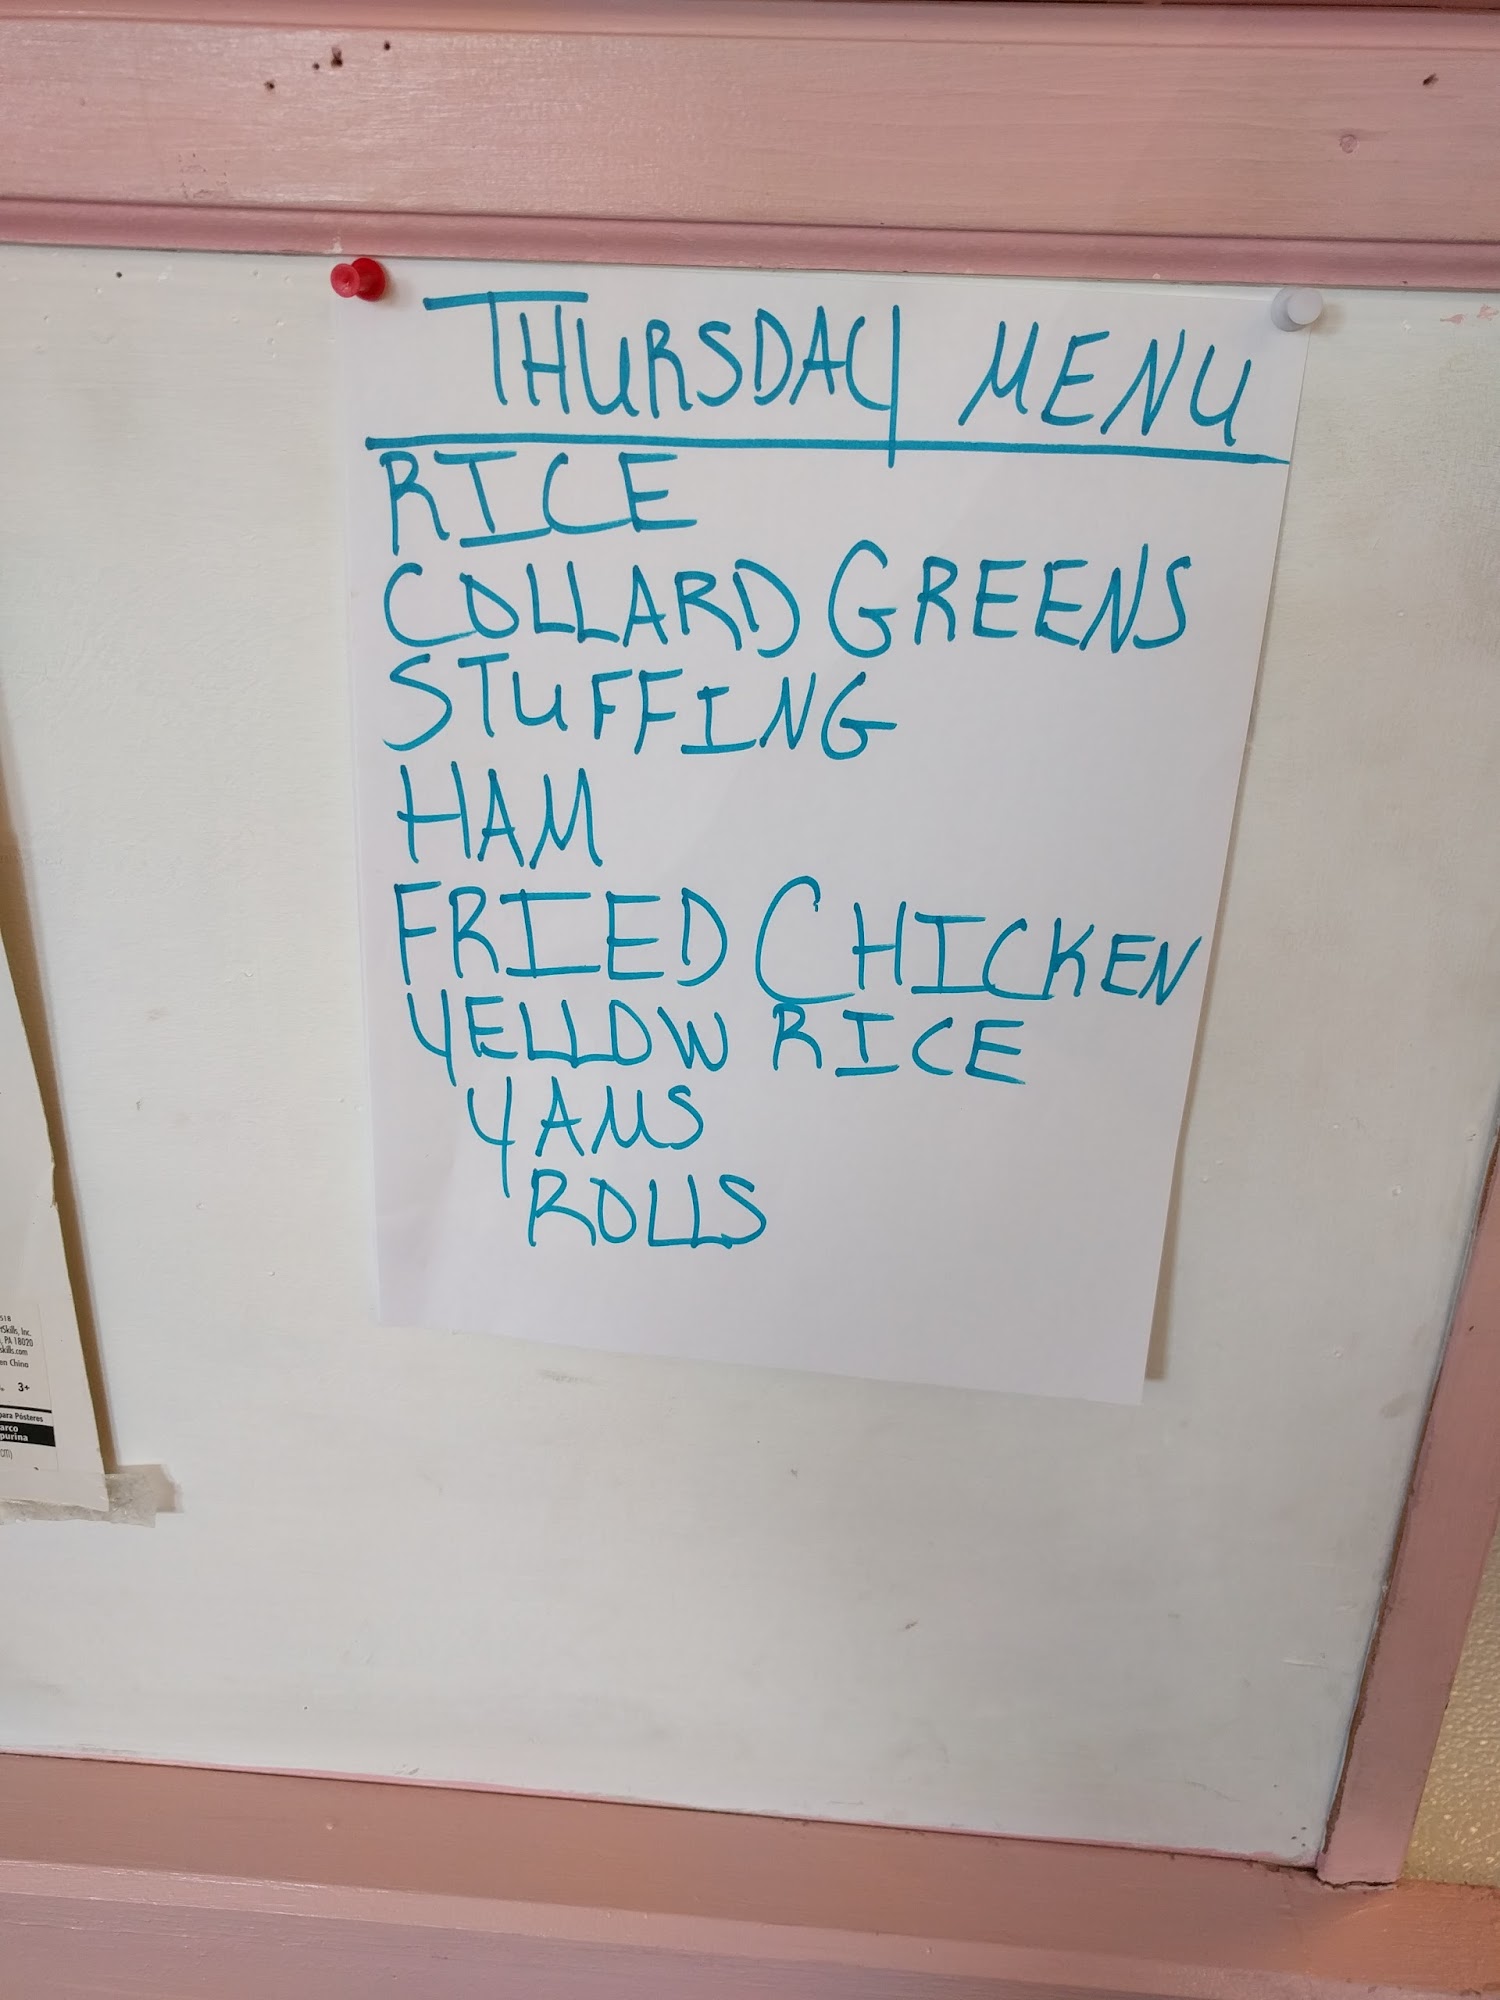 THURSDAY MENU
RICE
COLLARD GREENS
STUFFING
HAM
FRIED CHICKEN
YELLOW RICE
YAMS
ROLLS
Skills, Inc.
PA 18020
skills.com
en China
3+
para Pósteres
arco
purina
cm)